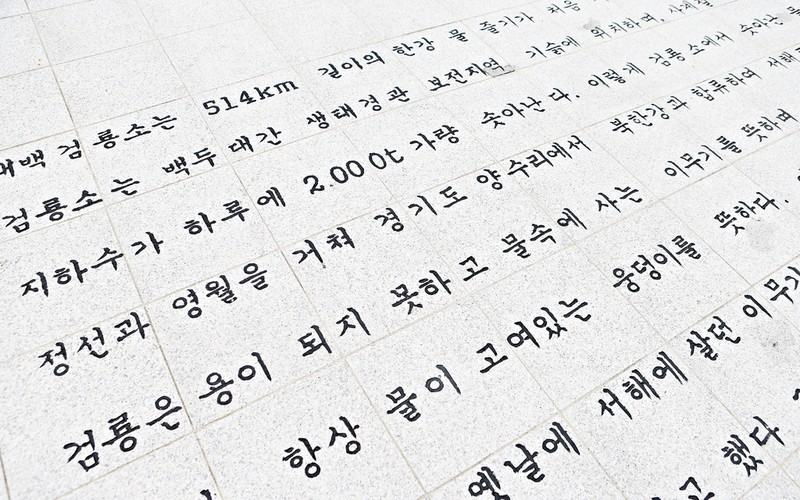 태백 검룡소는 514km 길이의 한강 물 줄기가 처음
검룡소는 백두대간 생태경관 보전지역 기슭에 위치하며, 사계절
지하수가 하루에 2.000t 가량 솟아난다. 이렇게 검룡소에서 솟아난 물
정선과 영월을 거쳐 경기도 양수리에서 북한강과 합류하며 서해로
검룡은 용이 되지 못하고 물속에 사는 이무기를 뜻하며
항상 물이 고여있는 웅덩이를 뜻하다.
옛날에 서해에 살던 이무기
고 했다